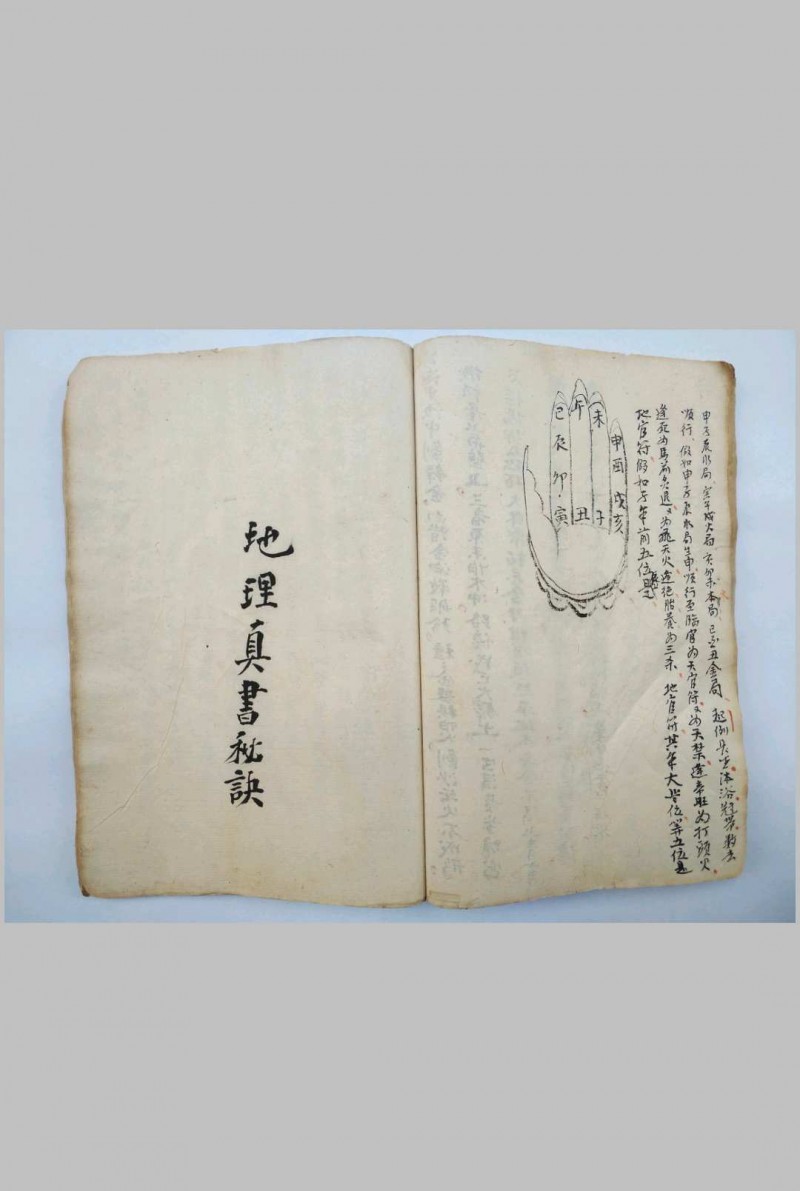 申子辰水局、寅午戌火局、亥卯未木局、巳酉丑金局、起例長生沐浴冠帶數去
順行、假如申子辰水局生申順行至臨官為天官符又為天禁逢帝旺為打頭火
逢死為馬前炎退又為飛天火逢绝胎養為三煞 地官符其年太歲位筭五位是
地官符假如子年前五位是
巳 午 未 申
辰 酉
卯 戌
寅 丑 子 亥
地理真書秘訣